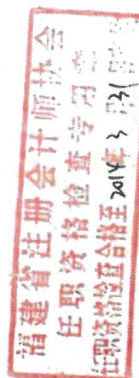 福建省注册会计师协会
任职资格检查专用
任职资格检查合格至2014年3月31日